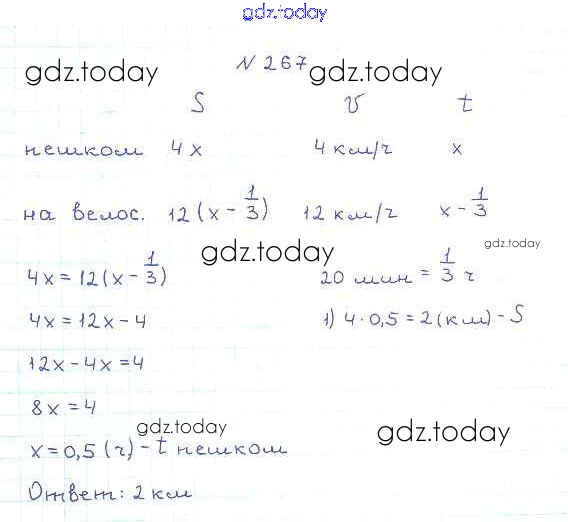 gdz.today
N 267
gdz.today gdz.today
S v t
пешком 4x 4 км/ч x
на велос. 12(x - 1/3) 12 км/ч x - 1/3
gdz.today gdz.today
4x = 12(x - 1/3) 20 мин = 1/3 ч
4x = 12x - 4 1) 4 · 0,5 = 2 (км) - S
12x - 4x = 4
8x = 4
gdz.today gdz.today
x = 0,5 (ч) - t пешком
Ответ: 2 км